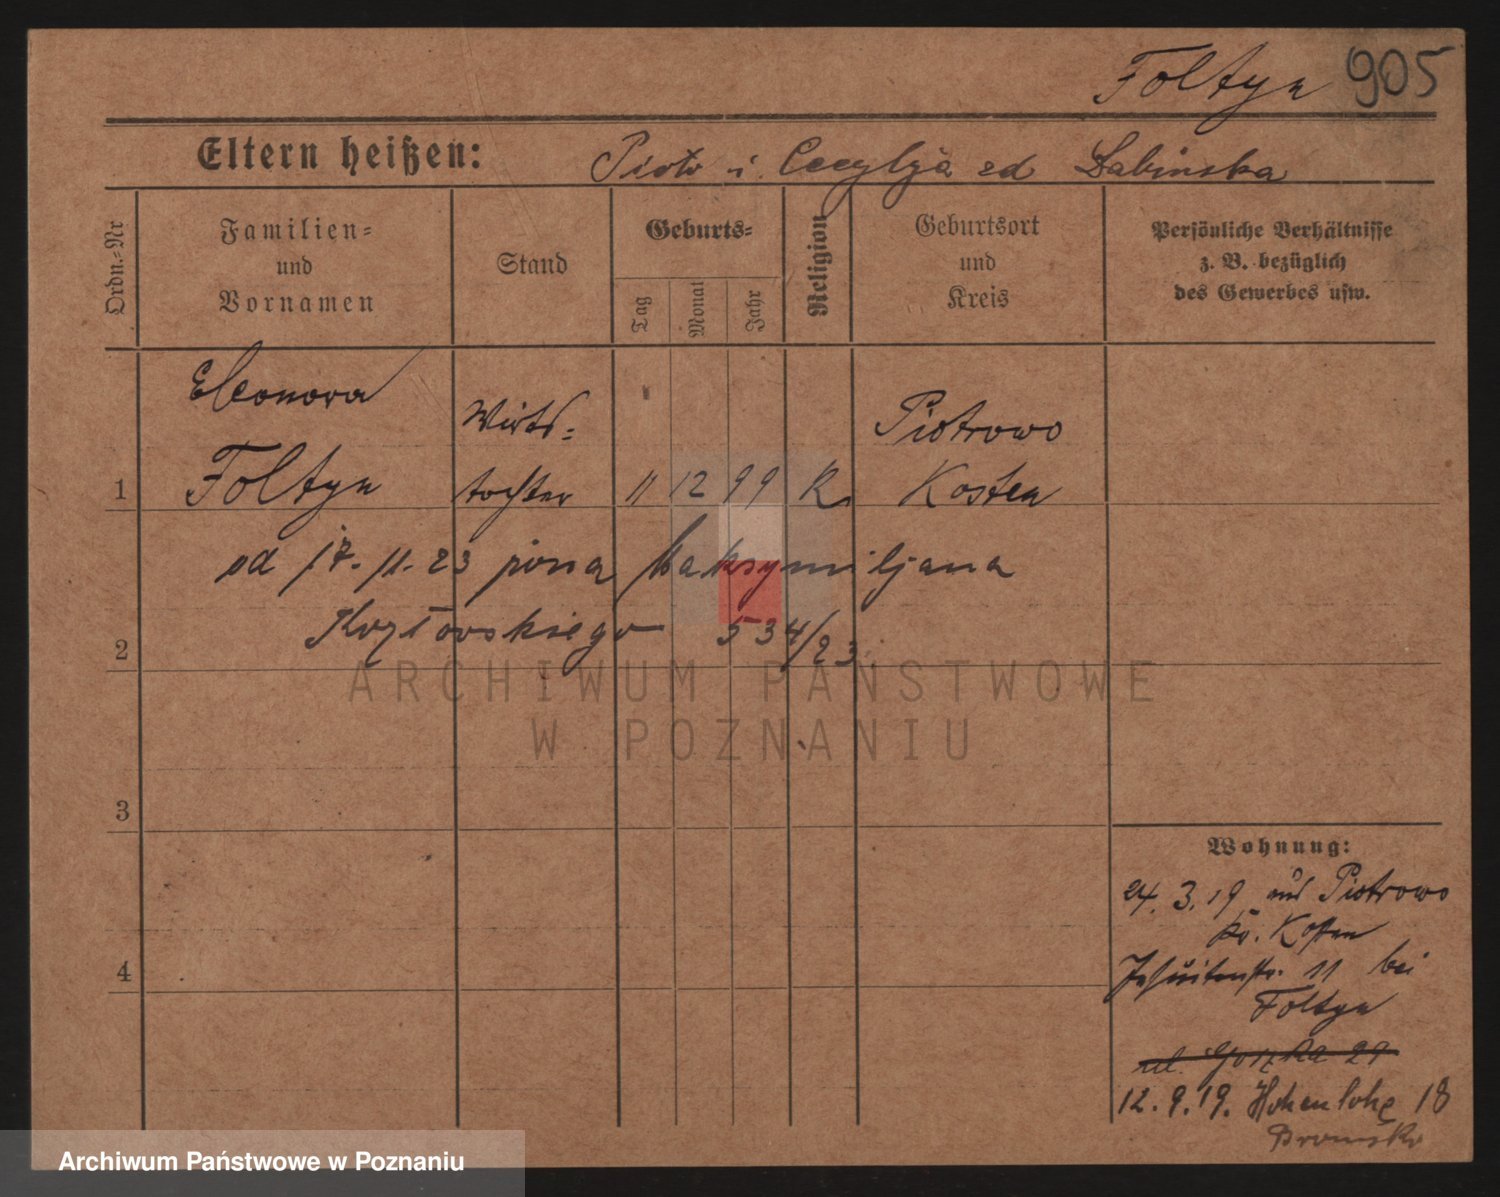 Foltyn 905
Eltern heißen: Piotr i Cecylja zd Labinska
Ordn.-Nr
Familien-
und
Vornamen
Stand
Geburts-
Tag
Monat
Jahr
Religion
Geburtsort
und
Kreis
Persönliche Verhältnisse
z. B. bezüglich
des Gewerbes usw.
Eleonora
Foltyn
Wirts-
tochter
1 11 12 99 K.
Piotrowo
Kosten
od 17.11.23 żona Maksymiljana
Kozłowskiego 534/23
2
3
4
Wohnung:
24.3.19 aus Piotrowo
Kr. Kosten
Jesuitenstr. 11 bei
Foltyn
ul. 29
12.9.19. Hohenlohe 18
ARCHIWUM PAŃSTWOWE
W POZNANIU
Archiwum Państwowe w Poznaniu